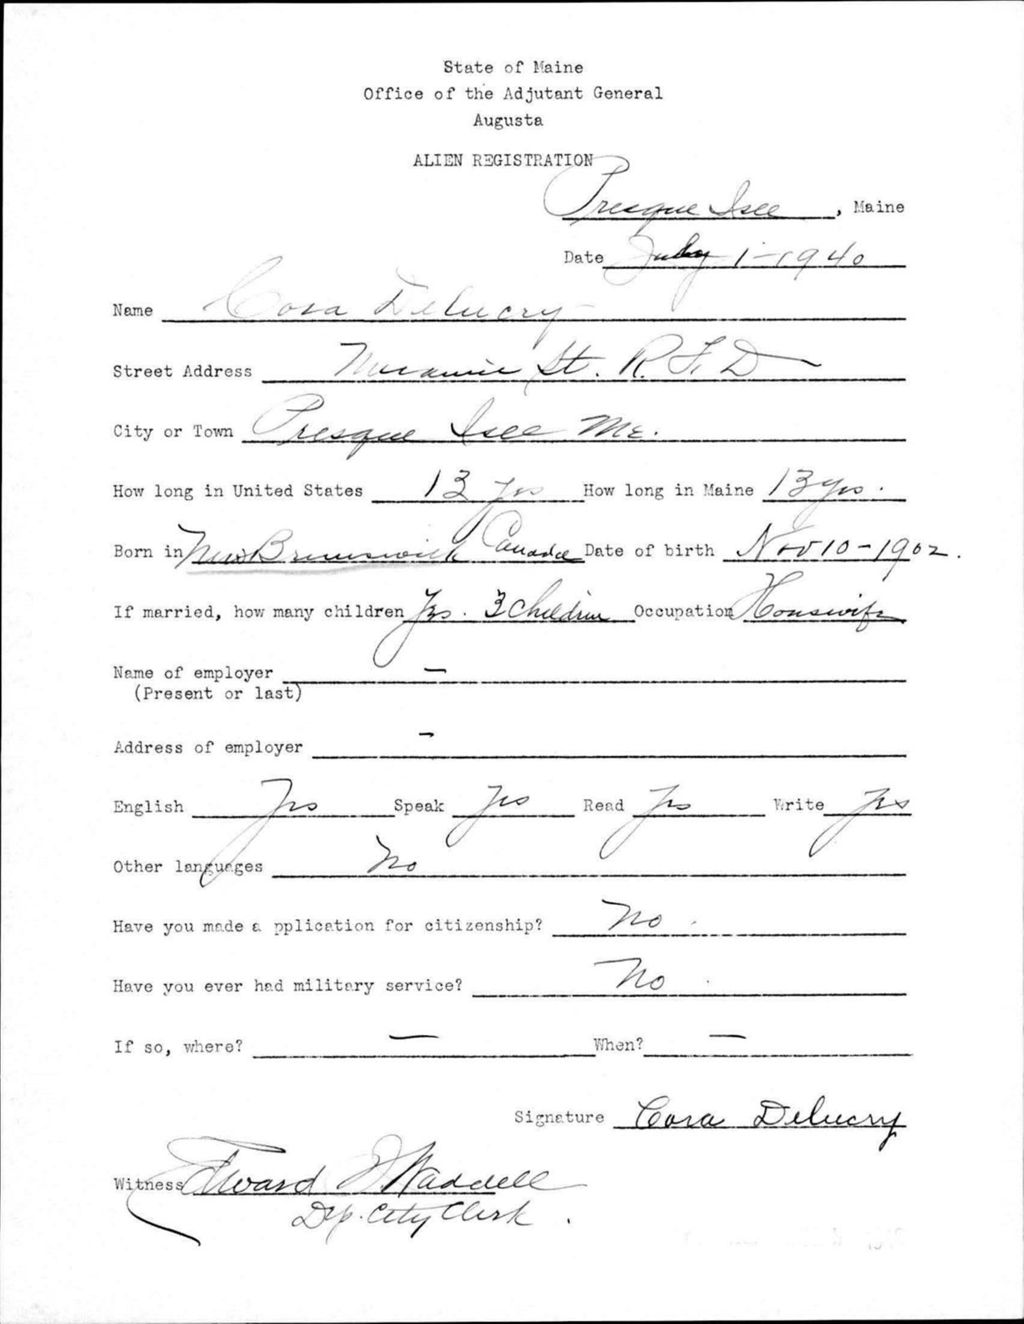 State of Maine
Office of the Adjutant General
Augusta
ALIEN REGISTRATION
Presque Isle, Maine
Date July 1-1940
Name Cora Delucry
Street Address St. R.F.D
City or Town Presque Isle Me.
How long in United States 13 yrs How long in Maine 13 yrs.
Born in New Brunswick Canada Date of birth Nov 10-1902.
If married, how many children Yes. 3 Children Occupation Housewife
Name of employer -
(Present or last)
Address of employer -
English Yes Speak Yes Read Yes Write Yes
Other languages No
Have you made a pplication for citizenship? No.
Have you ever had military service? No.
If so, where? - When? -
Signature Cora Delucry
Witness Edward J Waddell
Dep. City Clerk.